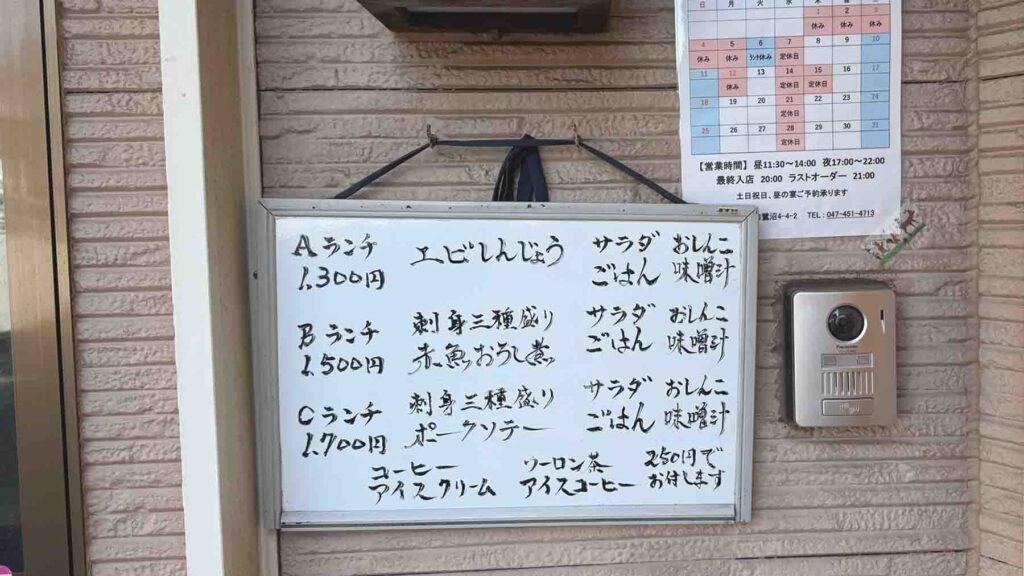 日 月 火 水 木 金 土
1 2 3
休み 休み 休み
4 5 6 7 8 9 10
休み 休み ランチ休み 定休日
11 12 13 14 15 16 17
休み 定休日 休み
18 19 20 21 22 23 24
定休日
25 26 27 28 29 30 31
定休日
【営業時間】 昼11:30～14:00 夜17:00～22:00
最終入店 20:00 ラストオーダー 21:00
土日祝日、昼の宴ご予約承ります
鷺沼4-4-2 TEL:047-451-4713
Aランチ エビしんじょう サラダ おしんこ
1.300円 ごはん 味噌汁
Bランチ 刺身三種盛り サラダ おしんこ
1.500円 赤魚おろし煮 ごはん 味噌汁
Cランチ 刺身三種盛り サラダ おしんこ
1.700円 ポークソテー ごはん 味噌汁
コーヒー ウーロン茶 250円で
アイスクリーム アイスコーヒー お付します